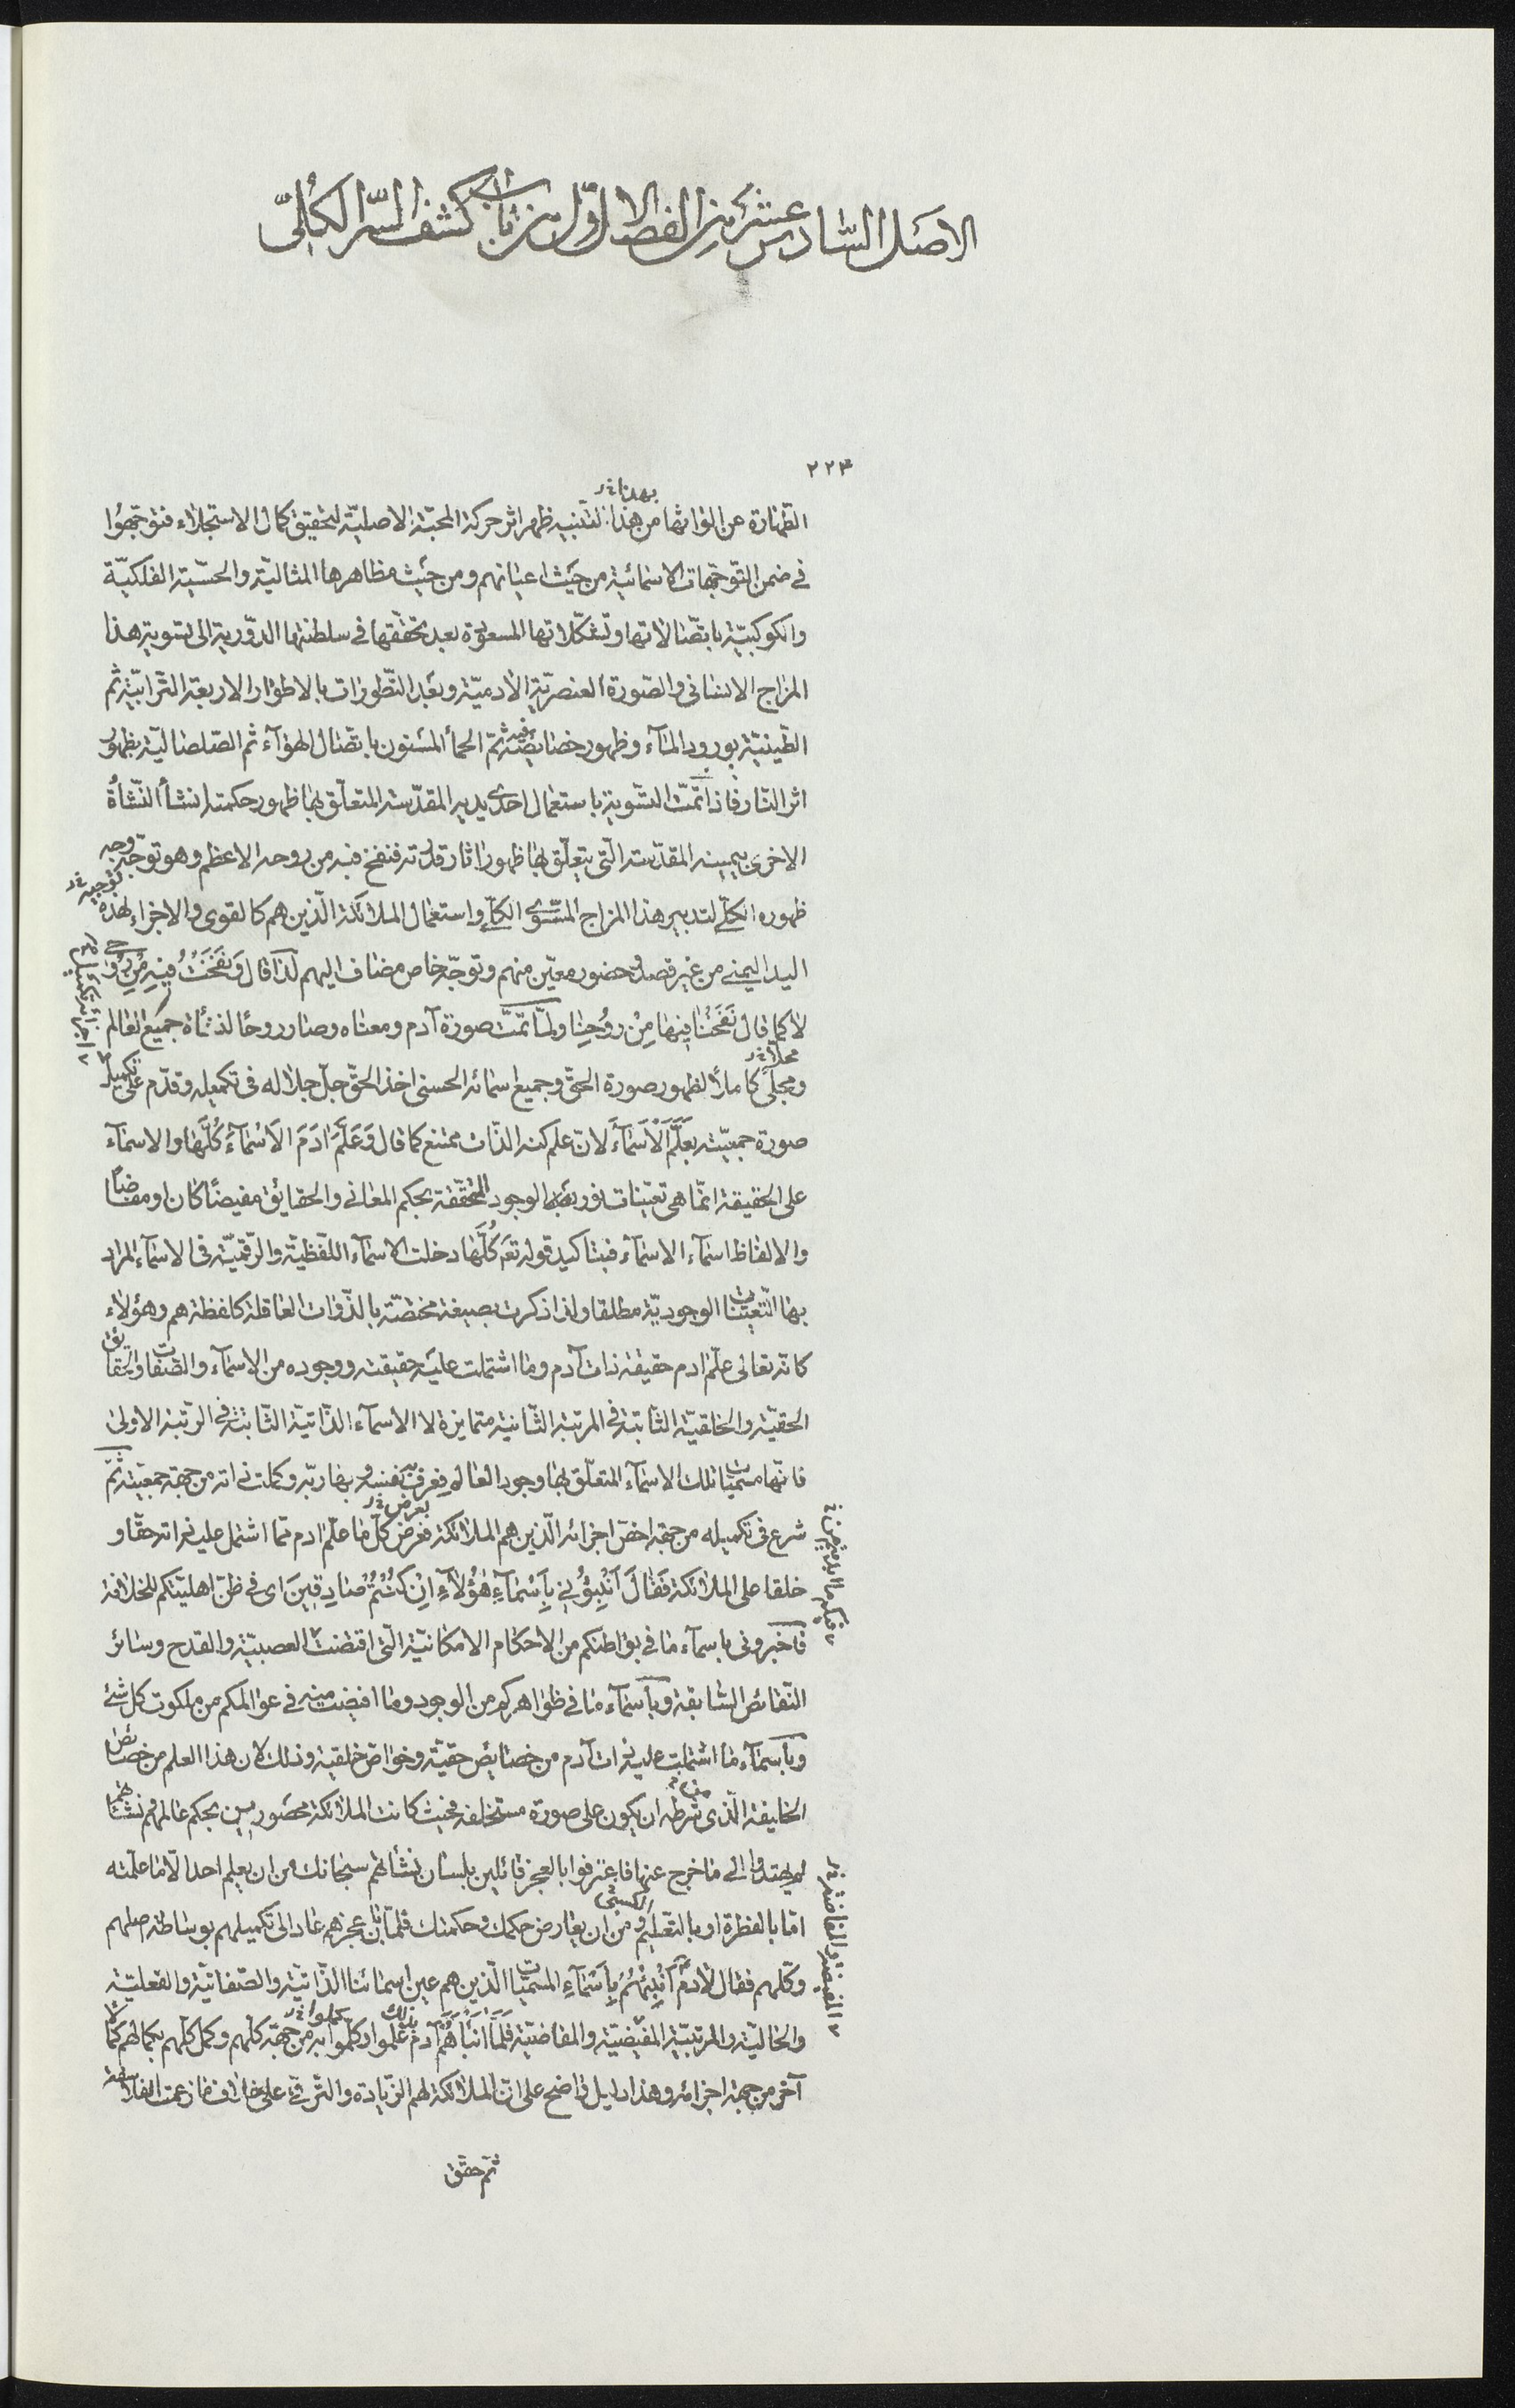 الاصل السّادس عشر من الفصل الاوّل من باب كشف السّر الكلّى
٢٢٣
بهذا خ ر
الطّهارة عن الواثها من هذا التنبيه ظهر اثر حركة المحبّة الاصليّة لتحقيق كمال الاستجلاء فتوجّهوا
فى ضمن التوجّهات الاسمائية من حيث اعيانهم ومن حيث مظاهرها المثاليّة والحسّية الفلكيّة
والكوكبيّة باتّصالاتها وتشكّلاتها المسعودة بعد تحقّقها فى سلطنتها الدّورية الى تسوية هذا
المزاج الانسانى والصّورة العنصريّة الادميّة وبعد التّطورات بالاطوار الاربعة التّرابيّة ثم
الطّينيّة بورود المآء وظهور خصايصه فيه ثمّ الحمأ المسنون باتّصال الهوآء ثم الصّلصاليّة بظهور
اثر النّار فاذا تمّت التسّوية باستعمال احدى يديه المقدّسة المتعلّق بها ظهور حكمته انشأ النّشأة
الاخرى بيمينه المقدّسة الّتى يتعلّق بها ظهور اثار قدرته فنفخ فيه من روحه الاعظم وهو توجّه وجه
توجيه خ ر
ظهوره الكلّى لتدبير هذا المزاج المسّوى الكلّى واستعمال الملائكة الّذين هم كالقوى والاجزاء لهذه
اليد اليمنى من غير قصد وحضور معيّن منهم وتوجّه خاص مضاف اليهم لذا قال وَنَفَخْتُ فيهِ مِنْ رُوحى
لا كما قال نَفَخْنا فيها مِنْ رُوحِنا ولمّا تمّت صورة آدم ومعناه وصار روحًا لذ جميع العالم
محلّا خ ر
ومجلًى كاملًا لظهور صورة الحقّ وجميع اسمائه الحسنى اخذ الحقّ جلّ جلاله فى تكميله وقدّم على تكميل
صورة جمعيّته بعَلَّمَ الْاَسْمآءَ لانّ علم كنه الذّات ممتنع كما قال وَعَلَّمَ ادَمَ الاَسْمآءَ كُلَّها والاسمآء
على الحقيقة انّما هى تعيّنات نوريّة الوجود المتحقّقة بحكم المعانى والحقايق مفيضًا كان او مفاضًا
والالفاظ اسمآء الاسمآء فبتاكيد قوله تع كُلَّها دخلت الاسمآء اللّفظيّة والرّقميّة فى الاسمآء المراد
بها التّعيّنات الوجوديّة مطلقا ولذا ذكرت بصيغة مختصّة بالذّوات العاقلة كلفظة هم وهؤلاء
كانّه تعالى علّم ادم حقيقة ذات آدم وما اشتملت عليه حقيقته ووجوده من الاسمآء والصّفات والحقايق
الحقيّة والخلقيّة الثّابتة فى المرتبة الثّانية متمايزة لا الاسمآء الذّاتيّة الثّابتة فى الرّتبة الاولى
فانّها مسمّيات تلك الاسمآء المتعلّق بها وجود العالم فعرف به نفسه وبها ربّه وكملت ذاته من جهة جمعيّته ثمّ
بعرض خ ر
شرع فى تكميله من جهة اخصّ اجزائه الّذين هم الملائكة فعرض كلّ ما علّم ادم ممّا اشتمل عليه ذاته حقّا و
خلقا على الملائكة فَقالَ اَنْبِؤُنى بِاَسْمآءِ هٰؤُلآءِ اِنْ كُنْتُمْ صادِقينَ اى فى ظنّ اهليّتكم للخلافة
فاخبرونى باسمآء ما فى بواطنكم من الاحكام الامكانيّة الّتى اقتضت العصبيّة والقدح وسائر
النّقائص السّابقة وباسمآء ما فى ظواهركم من الوجود وما افيضت منه فى عوالمكم من ملكوت كل شئ
وباسمآء ما اشتملت عليه ذات آدم من خصايص حقيّة وخواصّ خلقية وذلك لان هذا العلم من خصائص
الخليفة الّذى شرطه ان يكون على صورة مستخلفه فحيث كانت الملائكة محصورين بحكم عالمهم ونشأتهم
لم يهتدوا الى ما خرج عنها فاعترفوا بالعجز قائلين بلسان نشأتهم سبحانك من ان يعلم احد الّا ما علّمته
امّا بالفطرة او بالتعليم الكسبى ومن ان يعارض حكمك وحكمتك فلمّا بان عجزهم عاد الى تكميلهم بوساطة اصلهم
وكلّهم فقال لآدم اَنْبِئْهُمْ بِاَسْمآءِ المسمّيات الّذين هم عين اسمائنا الذّاتيّة والصّفاتيّة والفعليّة
والحاليّة والمرتبيّة المفيضيّة والمفاضيّة فَلَمّا اَنْبَأَهُمْ آدم بذلك علموا وكملوا به من جهة كلّهم وكمل كلّهم بكمالهم كمالا
آخر من جهة اجزائه وهذا دليل واضح على انّ الملائكة لهم الزّيادة والتّرقّى على خلاف ما زعمت الفلاسفة
ثمّ حقّق